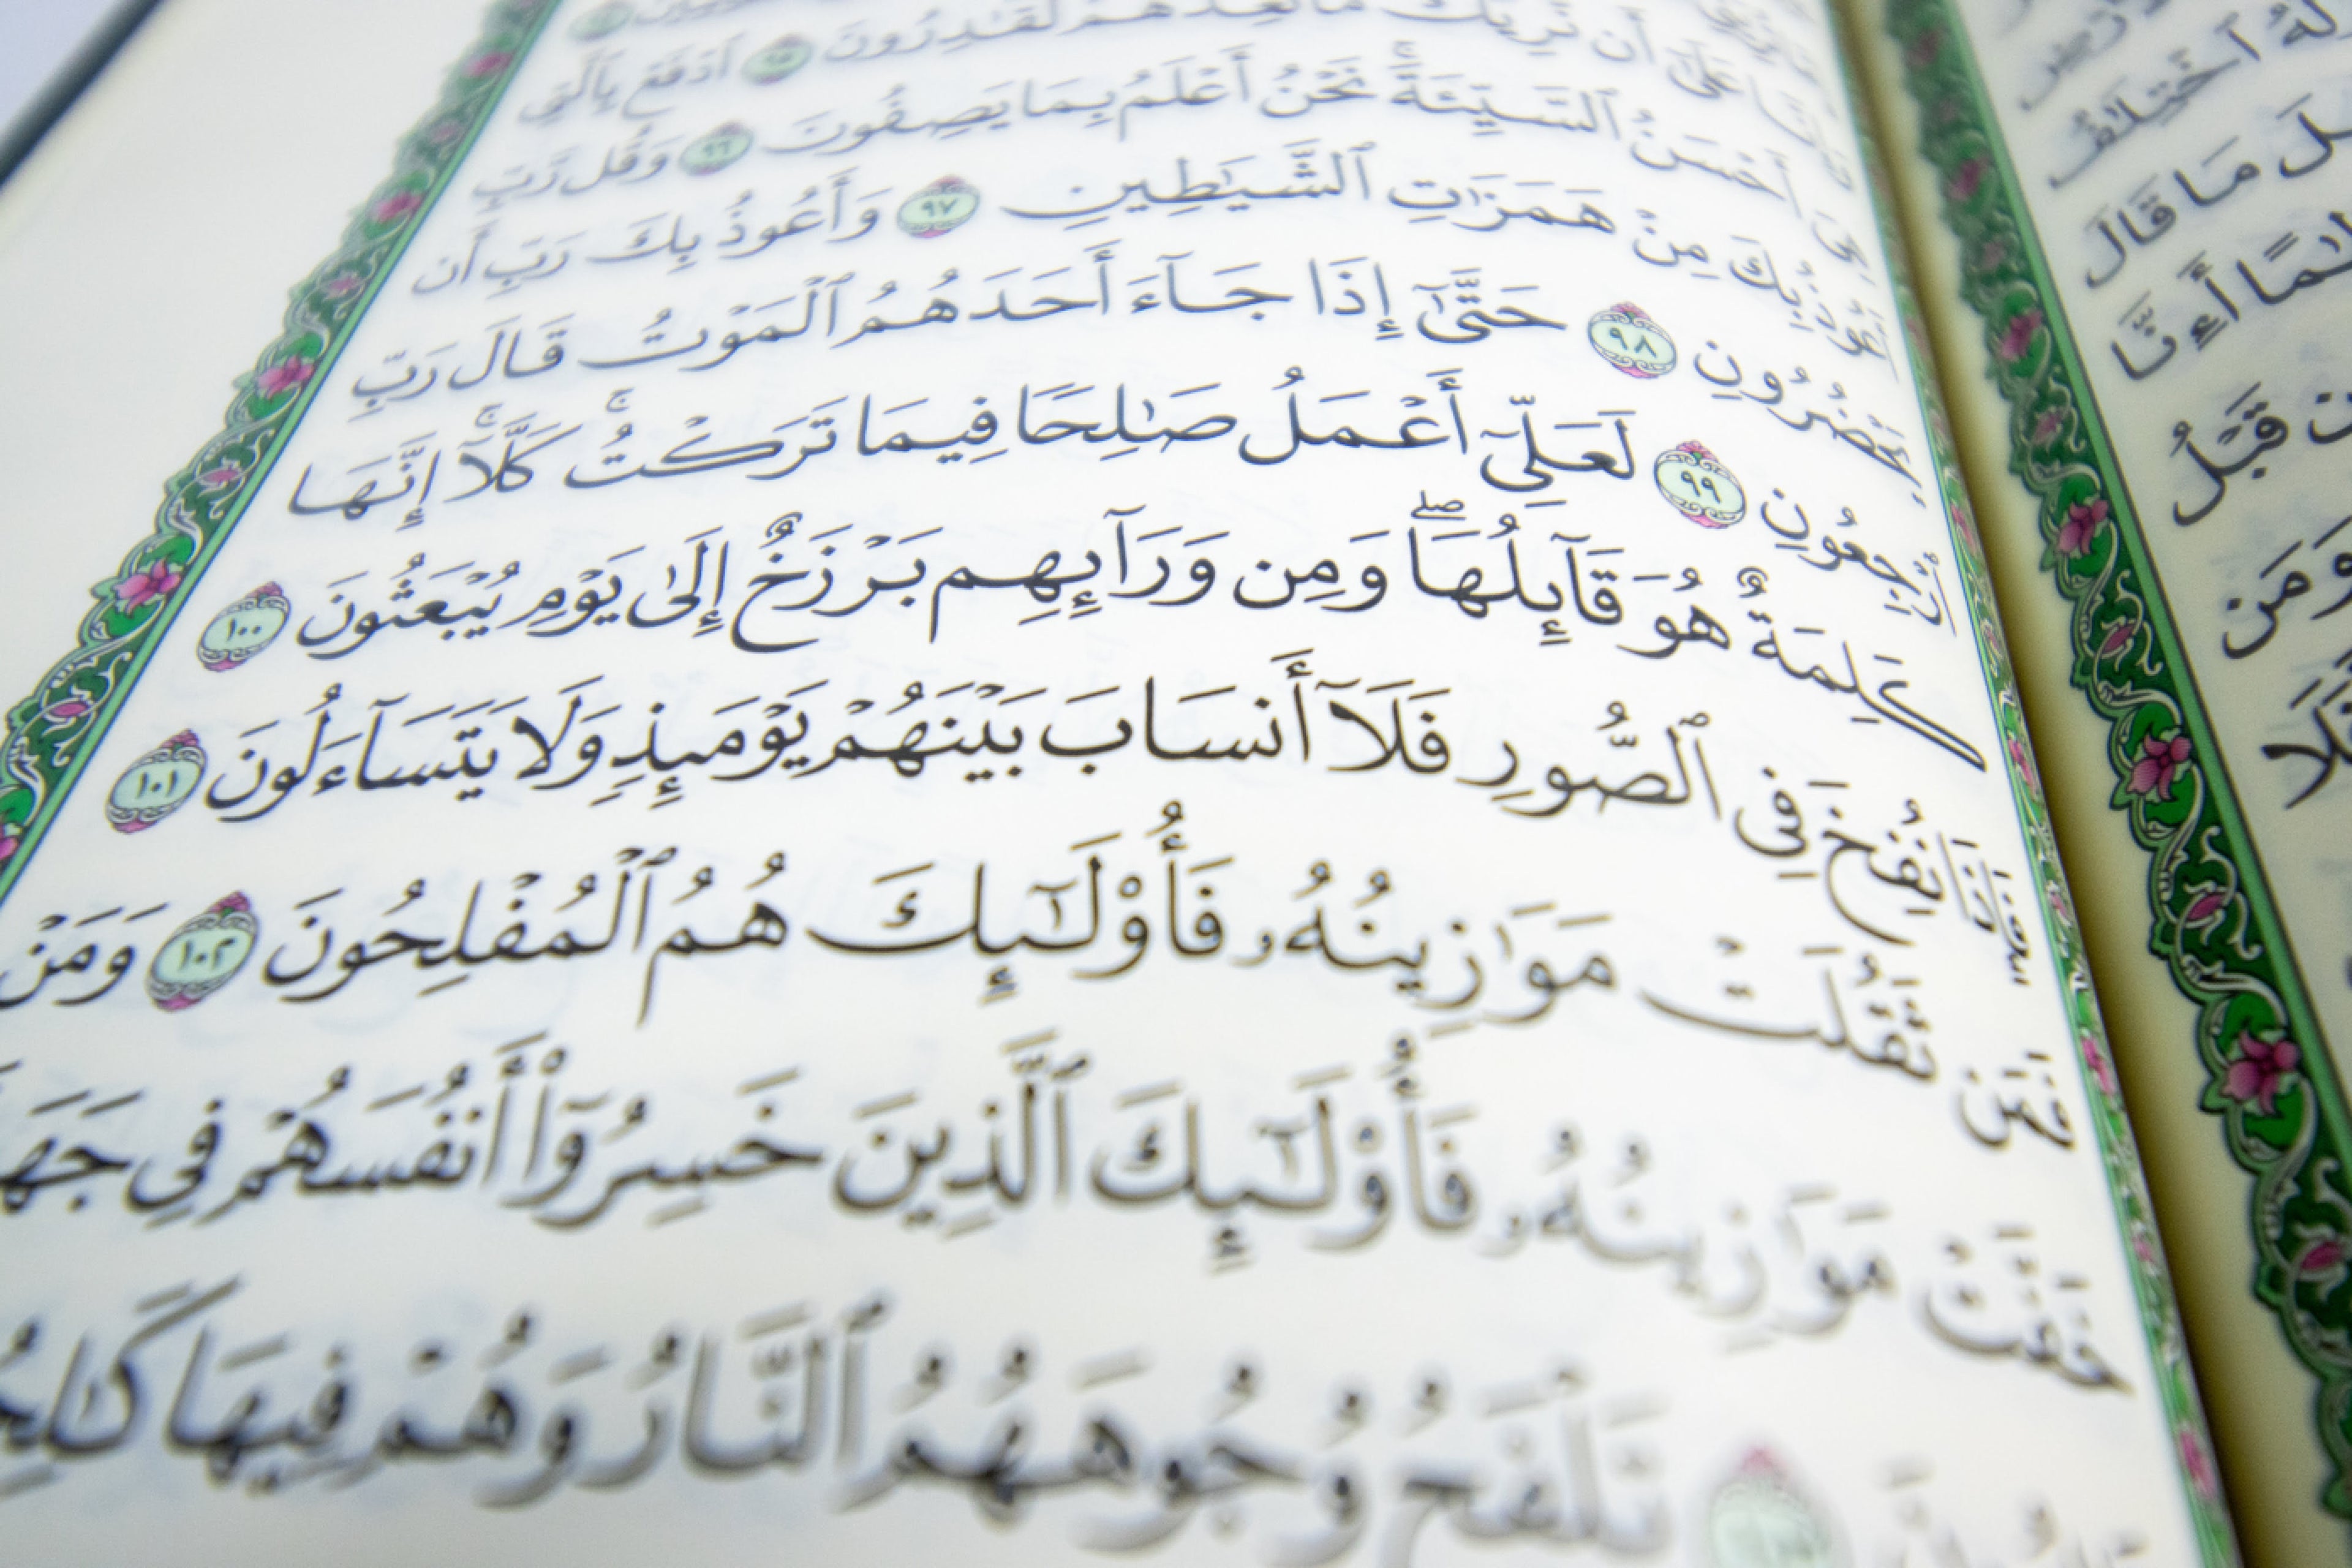 عَلَىٰٓ أَن نُّرِيَكَ مَا نَعِدُهُمْ لَقَٰدِرُونَ ٩٥ ٱدْفَعْ بِٱلَّتِى
هِىَ أَحْسَنُ ٱلسَّيِّئَةَ ۚ نَحْنُ أَعْلَمُ بِمَا يَصِفُونَ ٩٦ وَقُل رَّبِّ
أَعُوذُ بِكَ مِنْ هَمَزَٰتِ ٱلشَّيَٰطِينِ ٩٧ وَأَعُوذُ بِكَ رَبِّ أَن
يَحْضُرُونِ ٩٨ حَتَّىٰٓ إِذَا جَآءَ أَحَدَهُمُ ٱلْمَوْتُ قَالَ رَبِّ
ٱرْجِعُونِ ٩٩ لَعَلِّىٓ أَعْمَلُ صَٰلِحًا فِيمَا تَرَكْتُ ۚ كَلَّآ ۚ إِنَّهَا
كَلِمَةٌ هُوَ قَآئِلُهَا ۖ وَمِن وَرَآئِهِم بَرْزَخٌ إِلَىٰ يَوْمِ يُبْعَثُونَ ١٠٠
نُفِخَ فِى ٱلصُّورِ فَلَآ أَنسَابَ بَيْنَهُمْ يَوْمَئِذٍ وَلَا يَتَسَآءَلُونَ ١٠١
فَمَن ثَقُلَتْ مَوَٰزِينُهُۥ فَأُو۟لَٰٓئِكَ هُمُ ٱلْمُفْلِحُونَ ١٠٢ وَمَنْ
خَفَّتْ مَوَٰزِينُهُۥ فَأُو۟لَٰٓئِكَ ٱلَّذِينَ خَسِرُوٓا۟ أَنفُسَهُمْ فِى
تَلْفَحُ وُجُوهَهُمُ ٱلنَّارُ وَهُمْ فِيهَا
ٱخْتِلَٰفُ
مَا قَالَ
أَءِنَّا
قَبْلُ
وَمَن